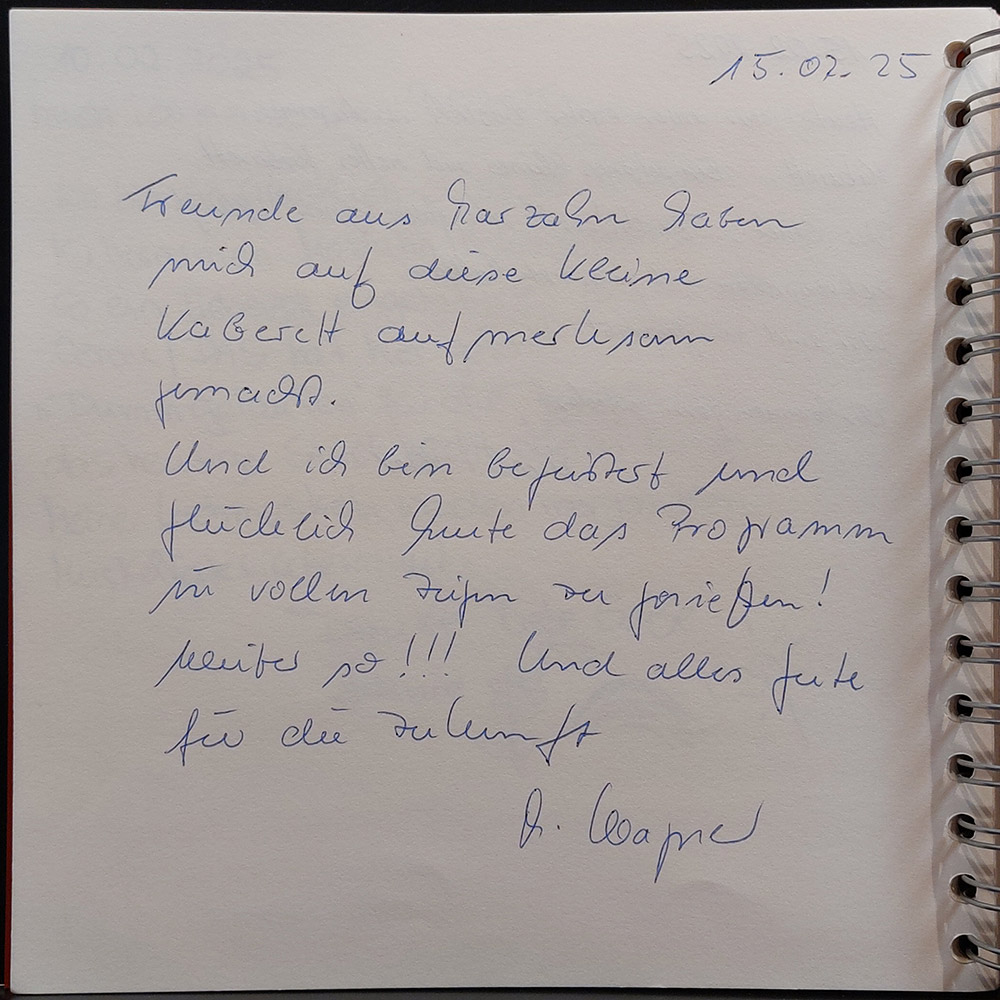 15.02.25
Freunde aus Marzahn haben
mich auf diese kleine
Kabarett aufmerksam
gemacht.
Und ich bin begeistert und
glücklich heute das Programm
in vollen Zügen zu genießen!
Weiter so!!! Und alles Gute
für die Zukunft
Wagner